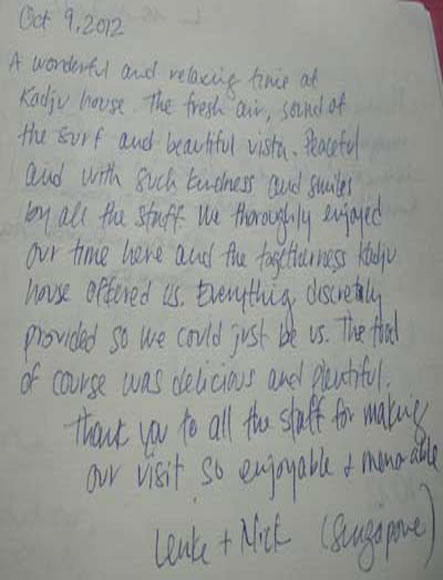 Oct 9, 2012
A wonderful and relaxing time at
Kadju house. The fresh air, sound of
the surf and beautiful vista. Peaceful
and with such kindness and smiles
by all the staff. We thoroughly enjoyed
our time here and the togetherness Kadju
house offered us. Everything discretely
provided so we could just be us. The food
of course was delicious and plentiful.
Thank you to all the staff for making
our visit so enjoyable & memorable
+ Nick (Singapore)